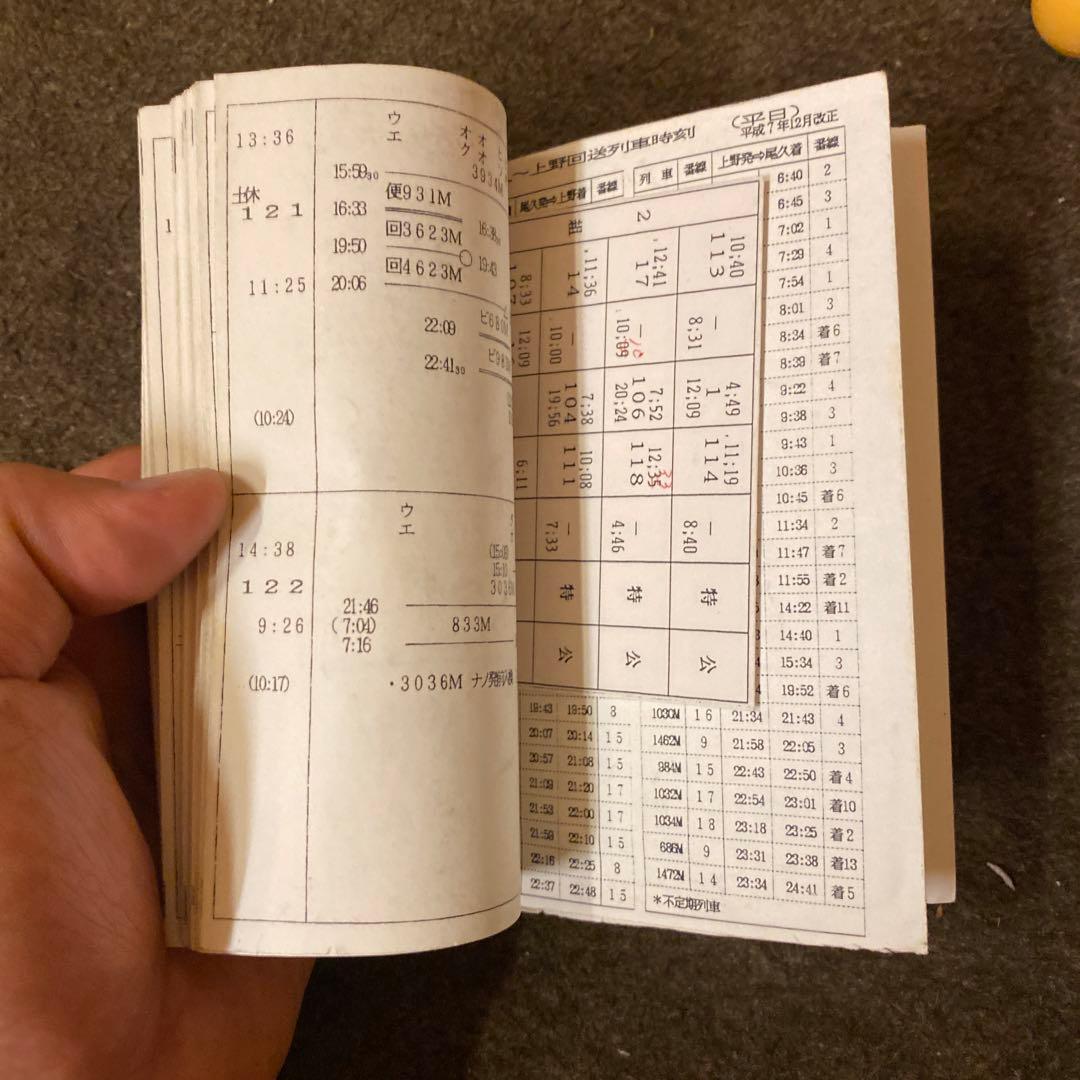 1
13:36
土休
121
11:25
(10:24)
ウ
エ
15:59₃₀
3934M
16:33 便931M
19:50 回3623M
20:06 回4623M
19:43
22:09
22:41₃₀
14:38
122
9:26
(10:17)
ウ
エ
21:46
(7:04) 833M
7:16
・3036M
～上野回送列車時刻
(平日)
平成7年12月改正
尾久発⇨上野着 番線 列車 番線 上野発⇨尾久着 番線
6:40 2
6:45 3
7:02 1
7:29 4
7:54 1
8:01 3
8:34 着6
8:39 着7
9:22 4
9:38 3
9:43 1
10:36 3
10:45 着6
11:34 2
11:47 着7
11:55 着2
14:22 着11
14:40 1
15:34 3
19:52 着6
19:43 19:50 8 1030M 16 21:34 21:43 4
20:07 20:14 15 1462M 9 21:58 22:05 3
20:57 21:08 15 984M 15 22:43 22:50 着4
21:09 21:20 17 1032M 17 22:54 23:01 着10
21:53 22:00 17 1034M 18 23:18 23:25 着2
21:59 22:10 15 686M 9 23:31 23:38 着13
22:16 22:25 8 1472M 14 23:34 24:41 着5
22:37 22:48 15
*不定期列車
2
10;40
113
―
8;31
4;49
1
12;09
,11;19
114
―
8;40
特
公
,12;41
17
―
10;09
7;52
106
20;24
12;35
33
118
―
4;46
特
公
,11;36
14
―
10;00
7;38
104
19;56
10;08
111
―
7;33
特
公
8;33
12;09
6;11